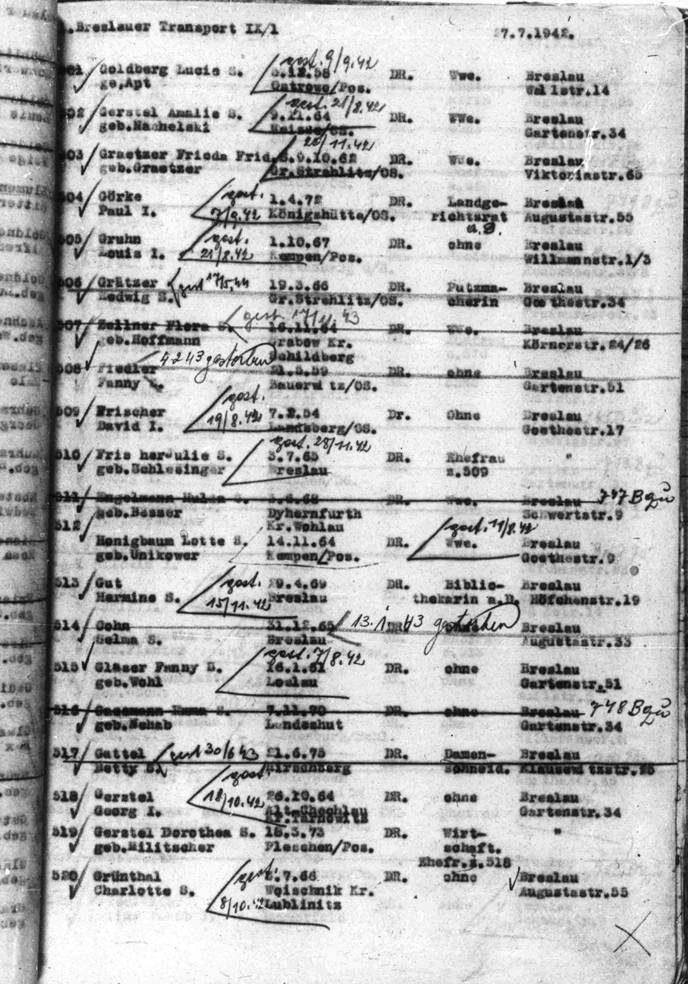 Breslauer Transport IX/1 27.7.1942.
gest. 9/9.42
501 Goldberg Lucie S. 5.12.58 DR. Wwe. Breslau
ge,Apt Ostrowo/Pos. Wallstr.14
gest. 21/8.42
502 Gerstel Amalie S. 9.11.64 DR. WWe. Breslau
geb.Nachelski Gartenstr.34
28/11.42
503 Graetzer Frieda Frid. S.9.10.62 DR. Wwe. Breslau
geb.Graetzer Gr.Strehlitz/OS. Viktoriastr.65
504 Görke gest. 1.4.72 DR. Landge- Breslau
Paul I. 7/9.42 Königshütte/OS. richtsrat Augustastr.55
a.D.
505 Gruhn gest. 1.10.67 DR. ohne Breslau
Louis I. 21/8.42 Kempen/Pos. Willmannstr.1/3
506 Grätzer gest 17/5.44 19.3.66 DR. Putzma- Breslau
Hedwig S. Gr.Strehlitz/OS. cherin Goethestr.34
gest. 17/11.43
507 Zellner Flora S. 16.11.64 DR. WWe. Breslau
geb.Hoffmann Grabow Kr. Körnerstr.24/26
4 2 43 gestorben Schildberg
508 Fiedler 21.5.59 DR. ohne Breslau
Fanny Bauerwitz/OS. Gartenstr.51
gest.
509 Frischer 7.2.54 Dr. Ohne Breslau
David I. 19/8.42 Landsberg/OS. Goethestr.17
gest. 28/11.42
510 Frischer Julie S. 3.7.65 DR. Ehefrau "
geb.Schlesinger Breslau z.509
511 Hulda S. DR. Wwe. Breslau 747 Bqu
geb.Besser Dyhernfurth Schwertstr.9
512 Kr.Wohlau gest. 11/8.42
Honigbaum Lotte S. 14.11.64 DR. Wwe. Breslau
geb.Unikower Kempen/Pos. Goethestr.9
513 Gut gest. 29.4.69 DR. Biblio- Breslau
Hermine S. 15/11.42 Breslau thekarin a.D. Höfchenstr.19
514 Cohn 31.12.65 13.1.43 gestorben DR. Breslau
Selma S. Breslau Augustastr.33
gest. 7/8.42
515 Glaser Fanny S. DR. ohne Breslau
geb.Wohl Loslau Gartenstr.51
516 Emma S. 7.11.70 DR. ohne Breslau 748 Bqu
geb.Nehab Landeshut Gartenstr.34
517 Gattel gest 30/6 43 21.6.75 DR. Damen- Breslau
Betty S. Hirschberg Schneid. Klausewitzstr.25
gest.
518 Gerstel 26.10.64 DR. ohne Breslau
Georg I. 18/10.42 Alt-Chechlau Gartenstr.34
Kr.Tarnowitz
519 Gerstel Dorothea S. 15.5.73 DR. Wirt- "
geb.Militscher Pleschen/Pos. schaft.
Ehefr.z.518
520 Grünthal gest. 2.7.66 DR. ohne Breslau
Charlotte S. Woischnik Kr. Augustastr.55
8/10.42 Lublinitz